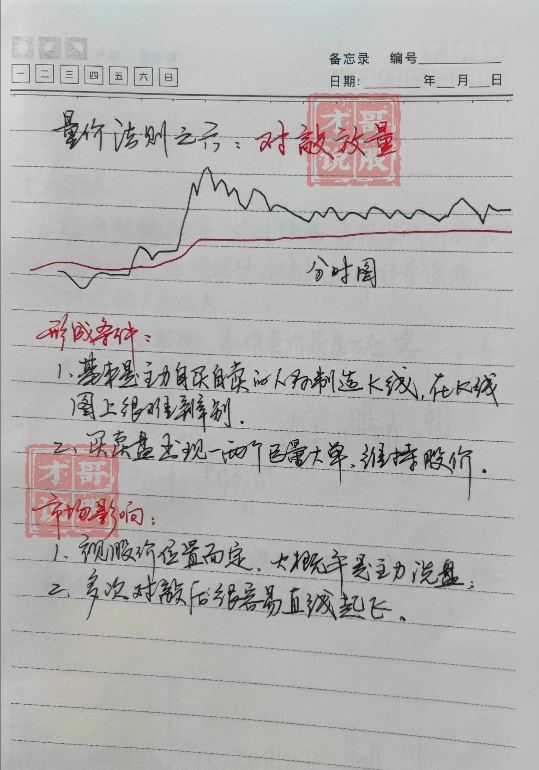 备忘录 编号
一 二 三 四 五 六 日
日期: 年 月 日
量价法则之六：对敲放量
才哥说股
分时图
形成条件：
1、基本是主力自买自卖的人为制造K线，在K线
图上很难辨别.
2、买卖盘出现一两个巨量大单，维持股价.
才哥说股
市场影响：
1、视股价位置而定，大概率是主力洗盘；
2、多次对敲后很容易直线起飞.